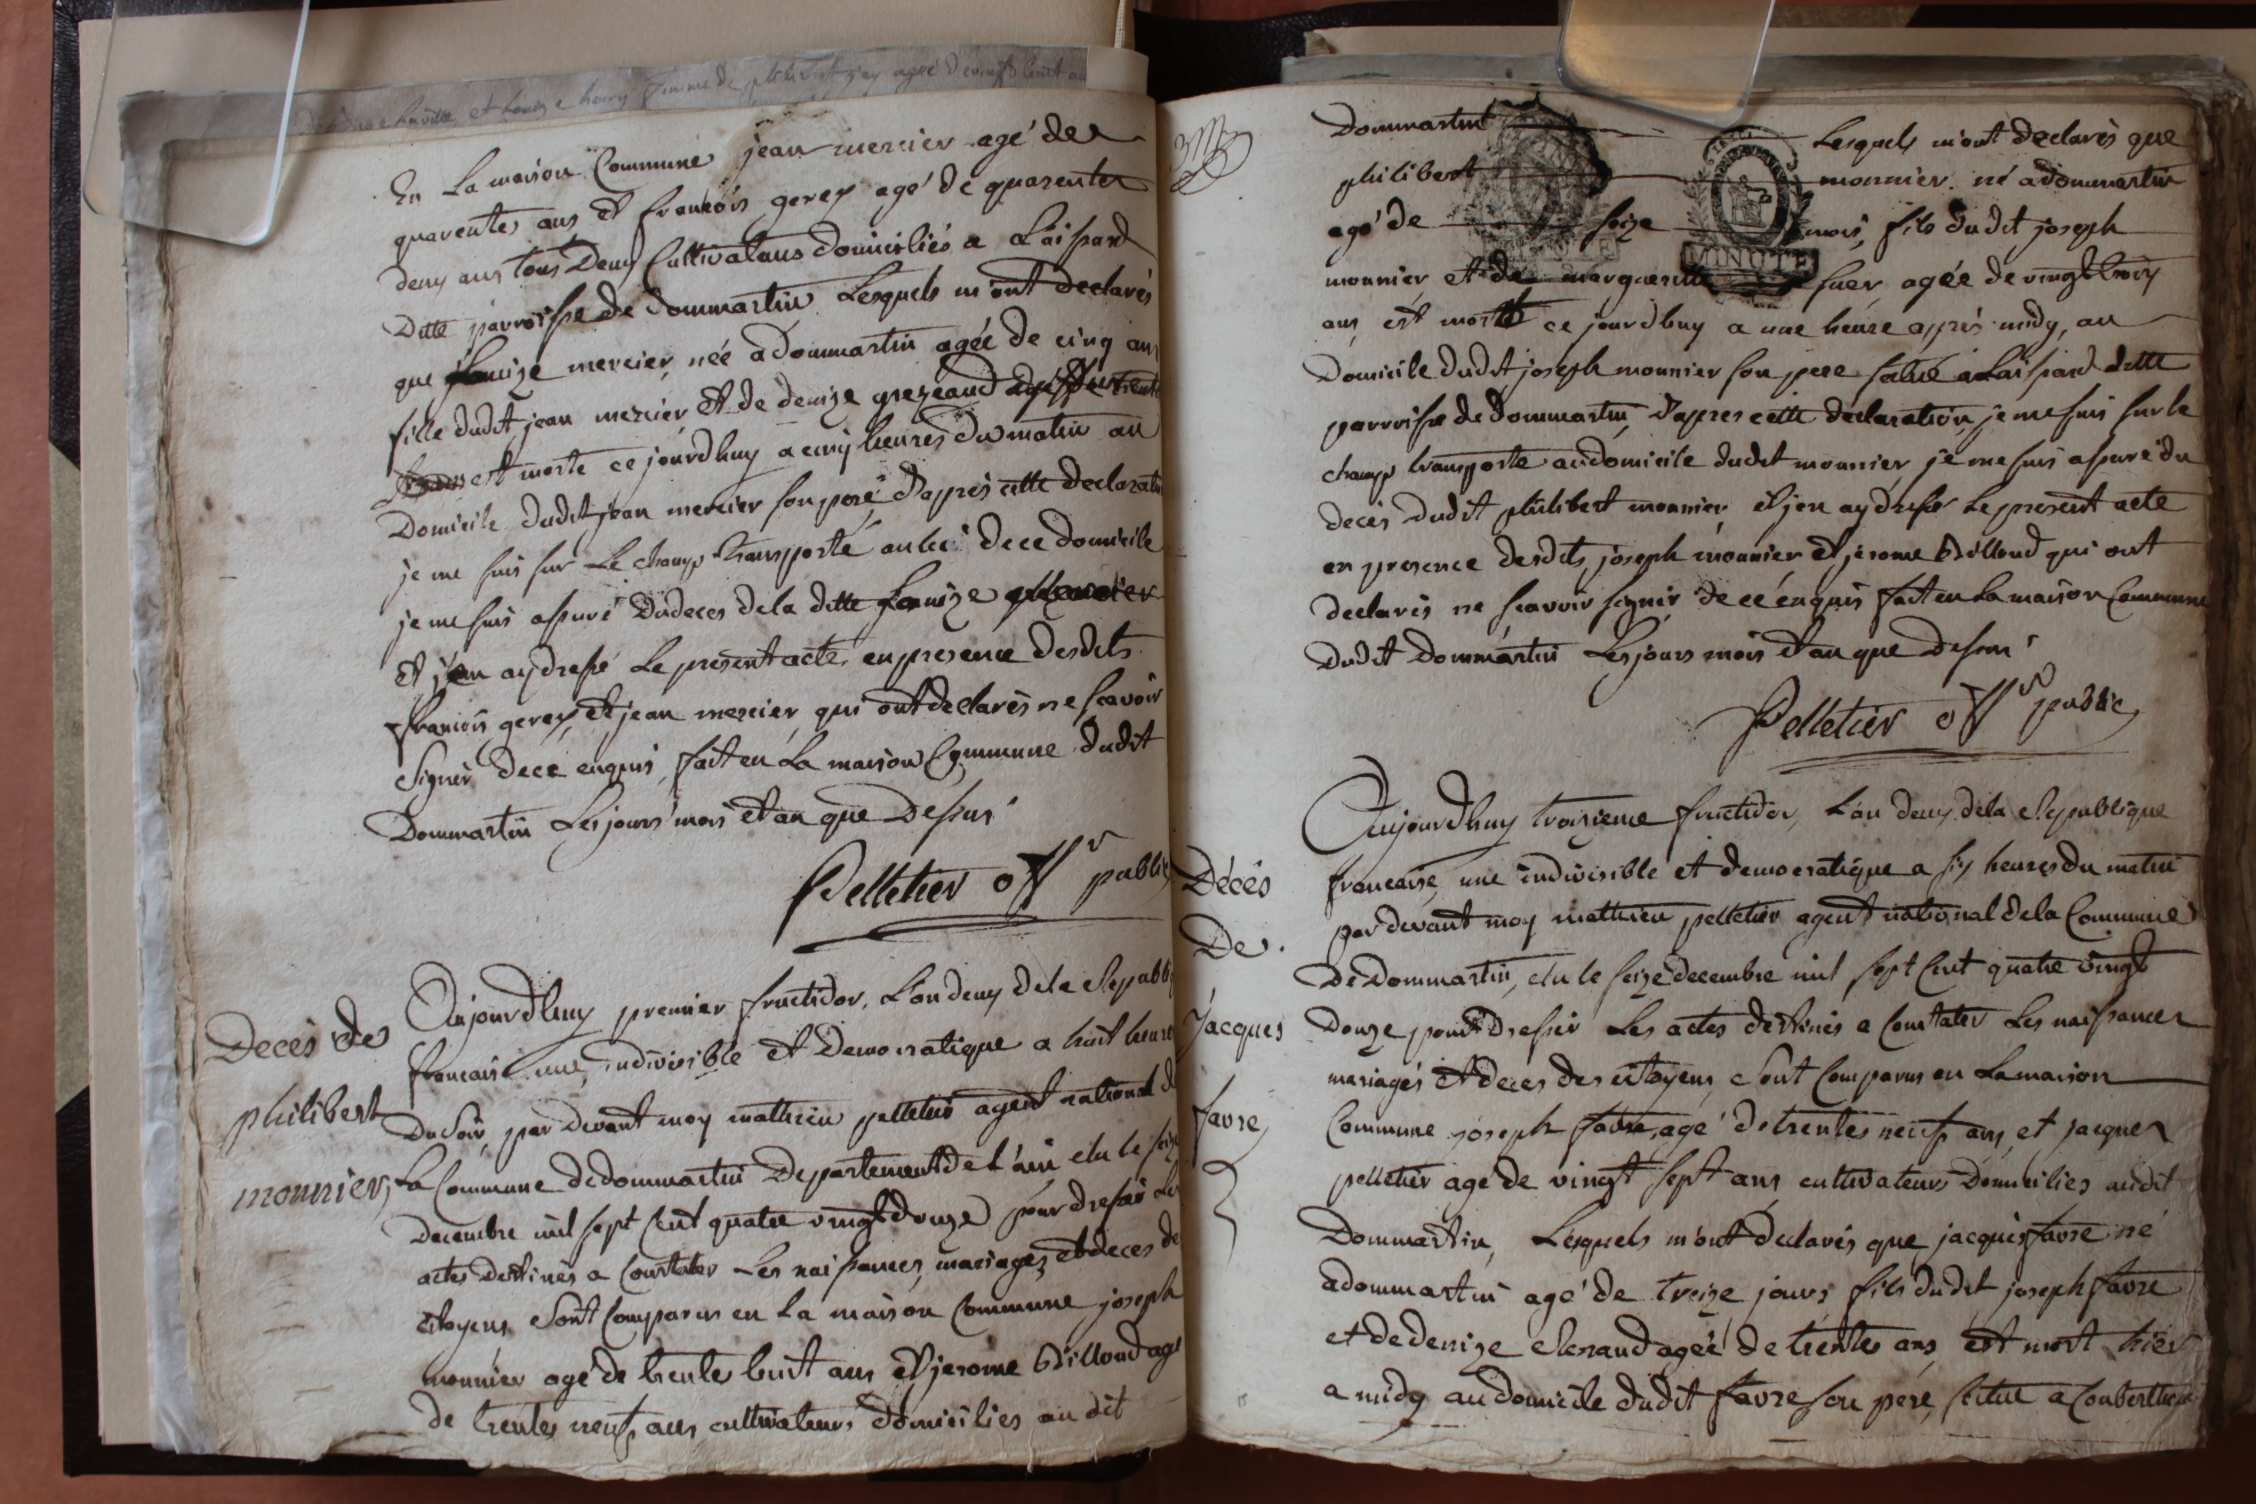 En La maison Commune jean mercier agé de
quarentes ans et francois gerey agé de quarentes
deux ans tous Deux Cultivataurs domiciliés a Laispard
Ditte parroisse de Dommartin Lesquels m'ont declarés
que jeanize mercier, née a dommartin agée de cinq ans
fille dudit jean mercier et de denize grezeaud
est morte ce jourdhuy a cinq heures du matin au
Domicile dudit jean mercier son pere, d'apres cette declaration
je me suis sur Le champ transporté au lieu de ce domicile
je me suis assuré du deces de la ditte
et j'en ay dressé Le present acte, en presence desdits
francois gerey et jean mercier, qui ont declarés ne scavoir
Signer de ce enquis, fait en La maison Commune dudit
Dommartin Les jours mois et an que Dessus
Pelletier offr public
Décès de
philibert
monnier
Aujourdhuy premier fructidor, L'an deux de la Republi
francaise une, indivisible et democratique a huit heures
Du Soir, par devant moy mathieu pelletier agent national de
La Commune de dommartin Departement de L'ain elu le seize
Decembre mil sept Cent quatre vingt douze pour dresser Les
actes destinés a Constater Les naissances, mariages et deces de
Citoyens, Sont Comparus en La maison Commune joseph
monnier agé de trente huit ans et jerome Billoud agé
de trentes neuf ans cultivateurs domiciliés au dit
Dommartin Lesquels m'ont declarés que
philibert monnier né a dommartin
agé de seize mois, fils dudit joseph
monnier et de marguerite fuer, agée de vingt trois
MINUTE
ans est mort ce jourdhuy a une heure après midy, au
Domicile dudit joseph monnier son pere situé a Laispard ditte
parroisse de Dommartin, d'apres cette declaration, je me suis sur le
champ transporté au domicile dudit monnier, je me suis assuré du
decès dudit philibert monnier et j'en ay dressé Le present acte
en presence desdits joseph monnier et jerome Billoud qui ont
declarés ne scavoir signer de ce enquis fait en La maison Commune
dudit Dommartin Les jours mois et an que Dessus
Pelletier offr public
Décès
De
Jacques
favre
Aujourdhuy troizieme fructidor, L'an deux de la Republique
francaise, une indivisible et democratique a six heures du matin
par devant moy mathieu pelletier agent national de la Commune
De Dommartin, elu le seize decembre mil sept Cent quatre vingt
Douze pour dresser Les actes destinés a Constater Les naissances
mariages et deces des citoyens, Sont Comparus en La maison
Commune joseph favre, agé de trentes neuf ans, et jacques
pelletier agé de vingt sept ans cultivateurs Domiciliés audit
Dommartin, Lesquels m'ont declarés que jacques favre né
a dommartin agé de treize jours fils dudit joseph favre
et de denize Clenaud agée de trentes ans est mort hier
a midy au domicile dudit favre son pere, situé a